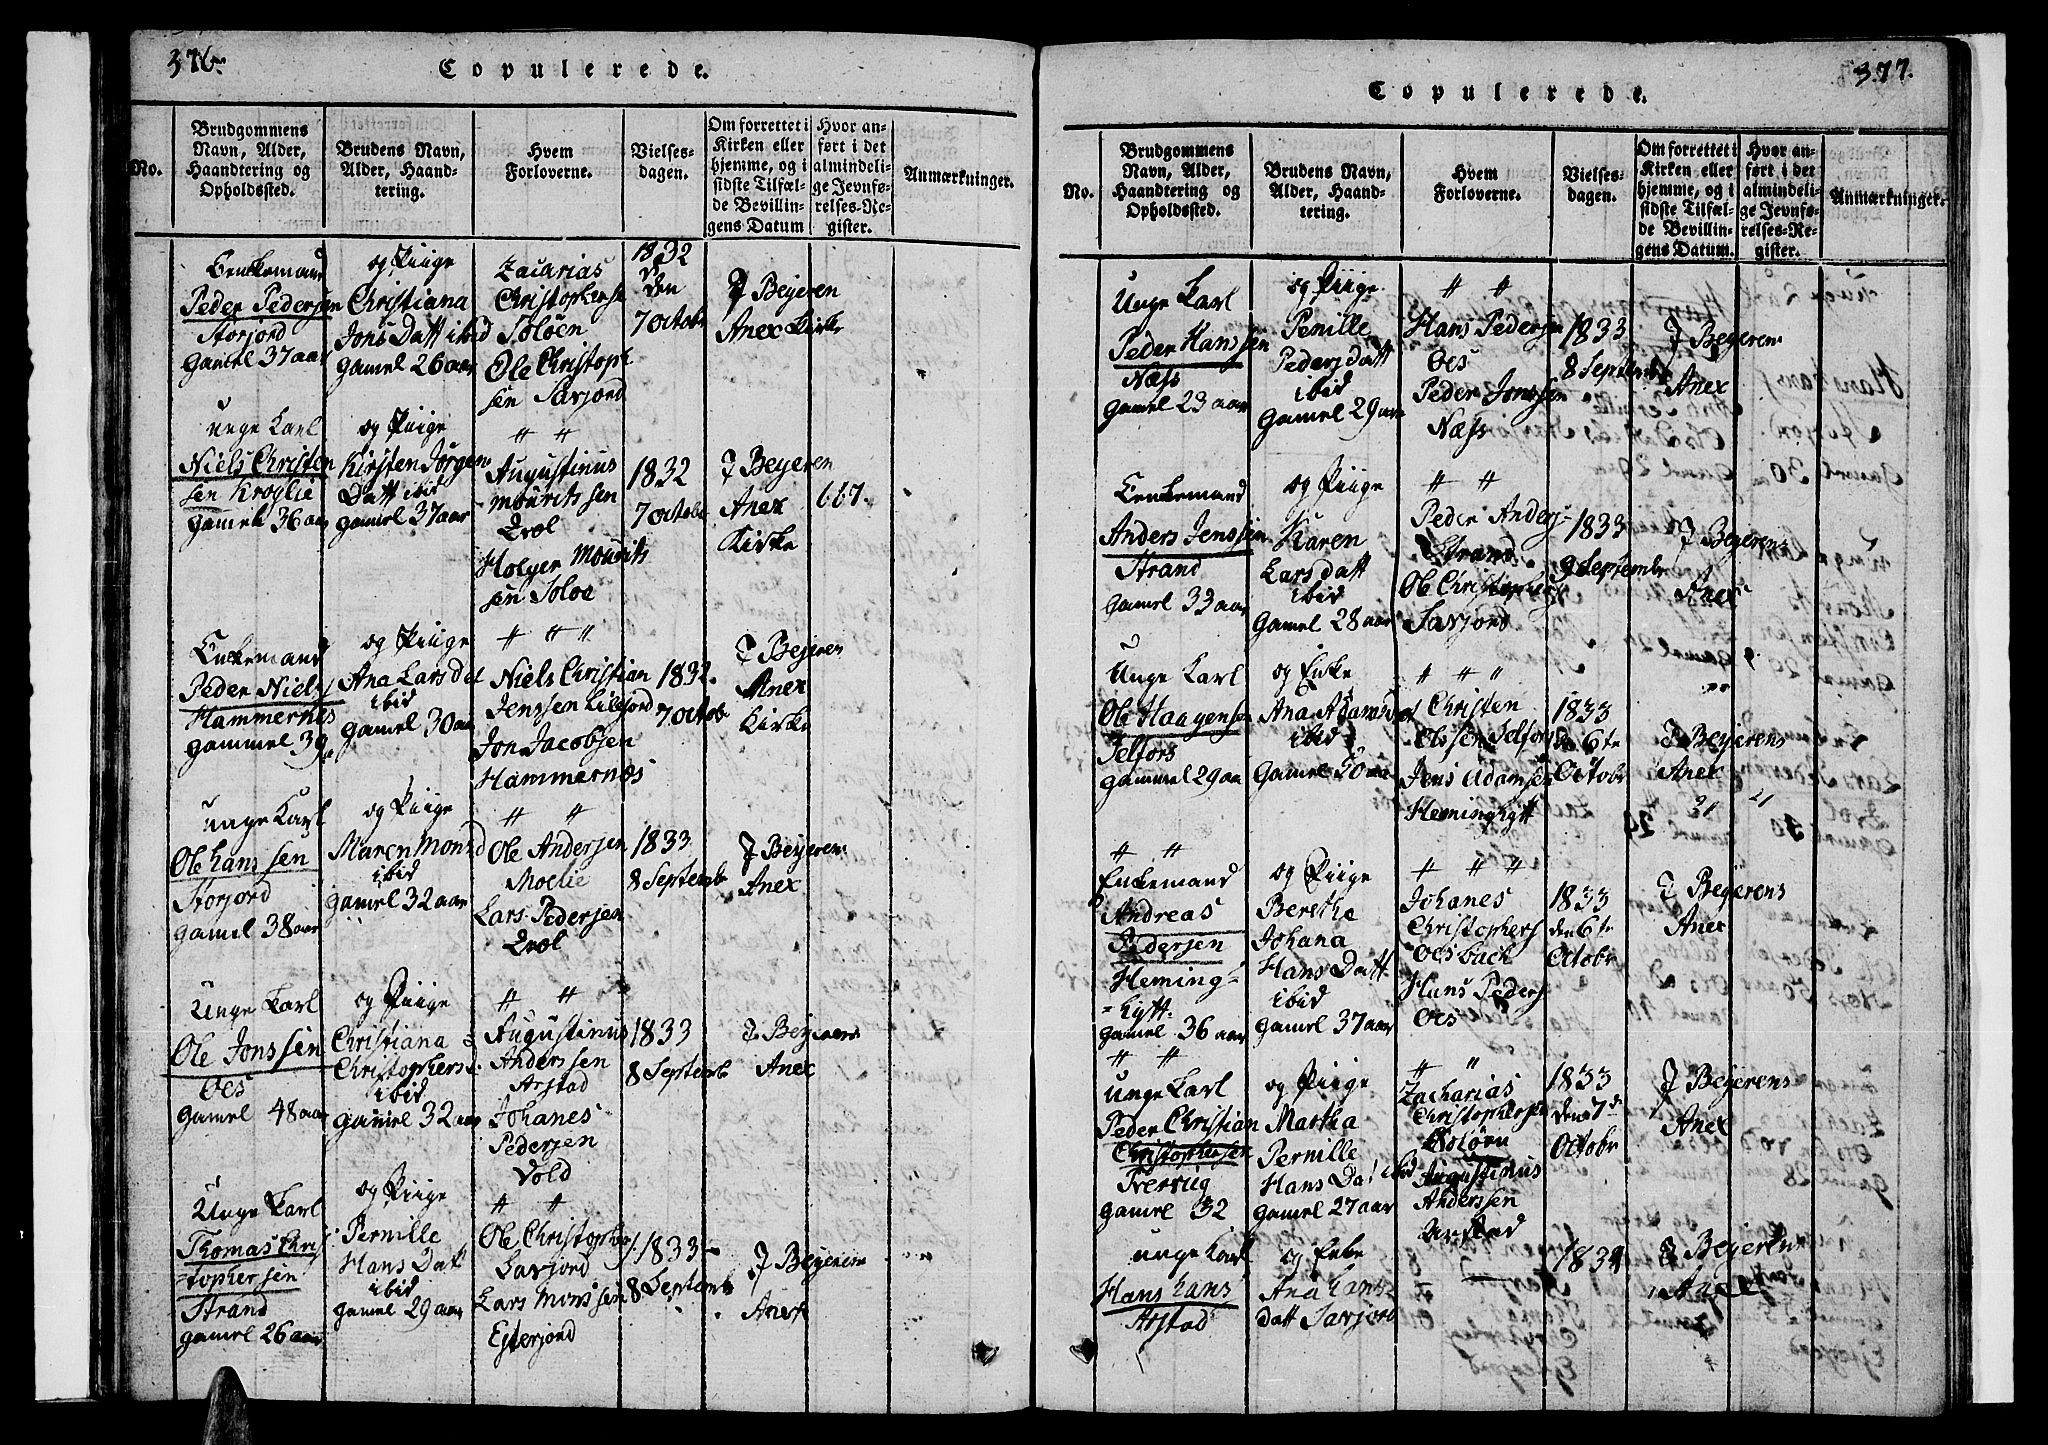 376
Copulerede.
No.
Brudgommens
Navn, Alder,
Haandtering og
Opholdssted.
Brudens Navn,
Alder, Haand-
tering.
Hvem
Forloverne.
Vielses-
dagen.
Om forrettet i
Kirken eller
hjemme, og i
sidste Tilfæl-
de Bevillin-
gens Datum
Hvor an-
ført i det
almindeli-
ge Jevnfø-
relses-Re-
gister.
Anmærkninger.
Enkemand
Peder Pedersen
Storjord
gamel 37 aar
og Piige
Christiana
Jons Datt ibid
gamel 26 aar
Zacarias
Christophersen
Soløen
Ole Christoph
sen Savjord
1832
den
7 octobr
J Beyeren
Anex Kirke
unge Karl
Niels Christen
sen Kroglie
gamel 36 aar
og Piige
Kirsten Jörgen
Datt ibid
gamel 37 aar
" "
Augustinus
mouritssen
Evæl
Holger Mourits
sen Soloe
1832
7 octobr
J Beyeren
Anex
Kirke
667.
Enkemand
Peder Niels
Hammernes
gammel 39
og Piige
Ana Larsdet
ibid
gamel 30 aar
" " "
Niels Christian
Jenssen Lilejord
Jon Jacobsen
Hammernæs
1832.
7 Octob
J Bejeren
Anex
Kirke
unge Karl
Ole hanssen
Storjord
gamel 38 aar
og Piige
Maren Monsd
ibid
gamel 32 aar
" "
Ole Andersen
Moelie
Lars Pedersen
Evæl
1833
8 Septembr
J Beyeren
Anex
Unge Karl
Ole Jonssen
Oes
gamel 48 aar
og Piige
Christiana
Christophersd
ibid
gamel 32 aar
" "
Augustinus
Anderssen
Arstad
Johanes
Pedersen
Vold
1833
8 Septembr
J Beyeren
Anex
Unge Karl
Thomas Chris
=tophersen
Strand
gamel 26 aar
og Piige
Pernille
Hans Datt
ibid
gamel 29 aar
" "
Ole Christophers
Savjord
Lars Monssen
Esterjord
1833
8 Septembr
J Beyeren
Anex
377.
Copulerede.
No.
Brudgommens
Navn, Alder,
Haandtering og
Opholdssted.
Brudens Navn,
Alder, Haand-
tering.
Hvem
Forloverne.
Vielses-
dagen.
Om forrettet i
Kirken eller
hjemme, og i
sidste Tilfæl-
de Bevillin-
gens Datum.
Hvor an-
ført i det
almindeli-
ge Jevnfø-
relses-Re-
gister.
Anmærkninger.
Unge Karl
Peder Hanssen
Næss
gamel 23 aar
og Piige
Penille
Pedersdatt
ibid
gamel 29 aar
" "
Hans Pedersen
Oes
Peder Jonssen
Næss
1833
8 Septembr
J Begeren
Anex
Enkemand
Anders Jenssen
Strand
gamel 33 aar
og Piige
Karen
Larsdatt
ibid
Gamel 28 aar
" "
Peder Anders
Strand.
Ole Christophers
Savjord
1833
9 Septembr
J Begerens
Anex
Unge Karl
Ole Haagensen
Selfors
gammel 29 aar
og Enke
Ana Adamsdat
ibid
Gamel 50 aar
" " "
Christen
Olssen Selfors
Jens Adamsen
Heminghytt
1833
den 6te
Octobr
J Beyerens
Anex
" "
Enkemand
Andreas
Pedersen
Heming=
=hytt.
gamel 36 aar
og Piige
Berethe
Johana
Hans Datt
ibid
gamel 37 aar
" " "
Johanes
Christophers
Oesbach
Hans Peders
Oes
1833
den 6te
Octobr
J Begerens
Anex
" "
Unge Karl
Peder Christian
Christophersen
Tvervig
gamel 32
og Piige
Martha
Pernille
Hans Dat ibid
gamel 27 aar
" "
Zacharias
Christophersen
Soløen
Augustinus
Anderssen
Arstad
1833
den 7d
Octobr
J Begerens
Anex
unge Karl
Hans hans
Arstad
og Enke
Ana hans
datt Savjord
1834
J Begeren
Anex